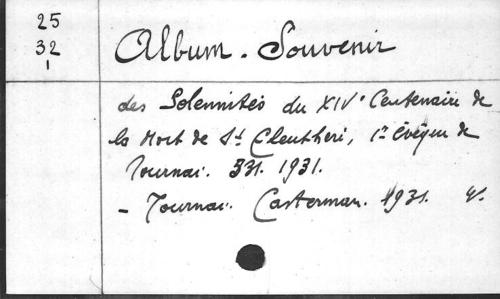 25
32
1
Album. Souvenir
des Solennités du XIVe Centenaire de
la Mort de St Eleuthère, 1er Évêque de
Tournai. 531. 1931.
- Tournai. Casterman. 1931.